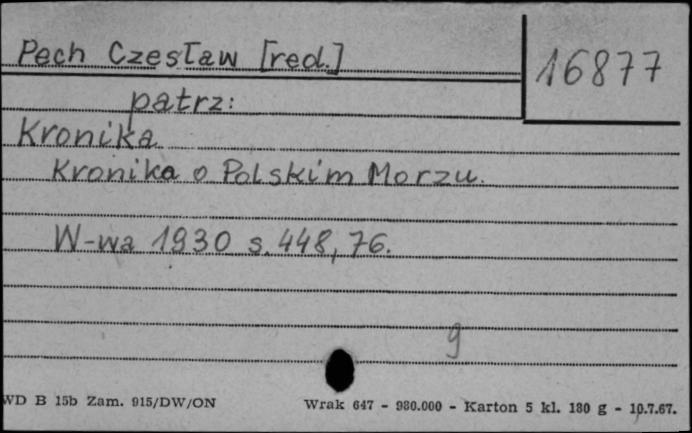 Pech Czesław [red.]
16877
patrz:
Kronika
Kronika o Polskim Morzu.
W-wa 1930 s. 448, 76.
9
WD B 15b Zam. 915/DW/ON
Wrak 647 - 980.000 - Karton 5 kl. 180 g - 10.7.67.